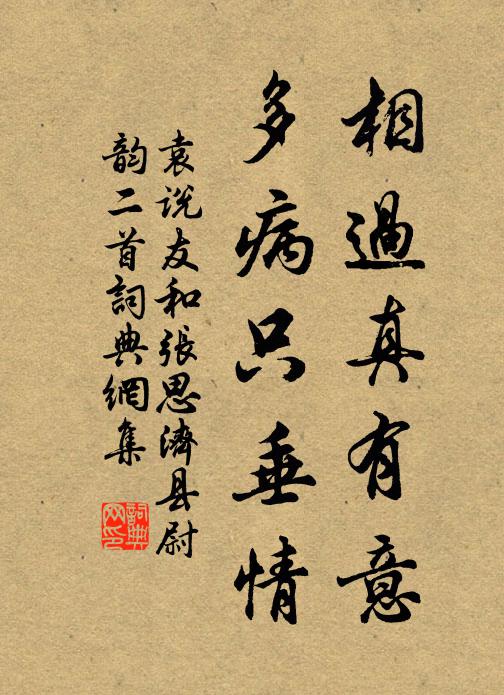 相過真有意
多病只垂情
袁説友和張思濟县尉
韵二首詞典網集
詞典网印